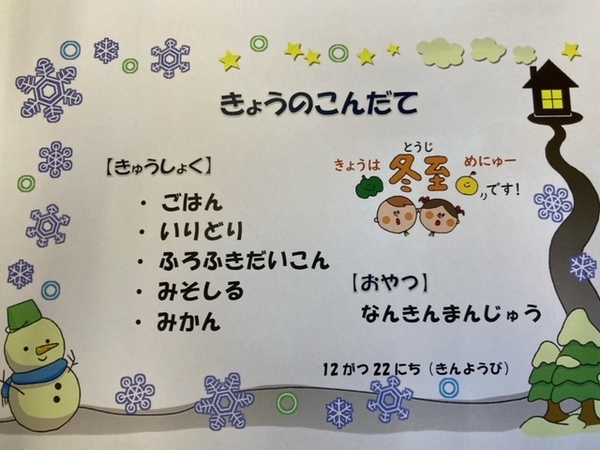 きょうのこんだて
【きゅうしょく】
・ ごはん
・ いりどり
・ ふろふきだいこん
・ みそしる
・ みかん
とうじ
きょうは 冬至 めにゅー
です!
【おやつ】
なんきんまんじゅう
12がつ22にち(きんようび)